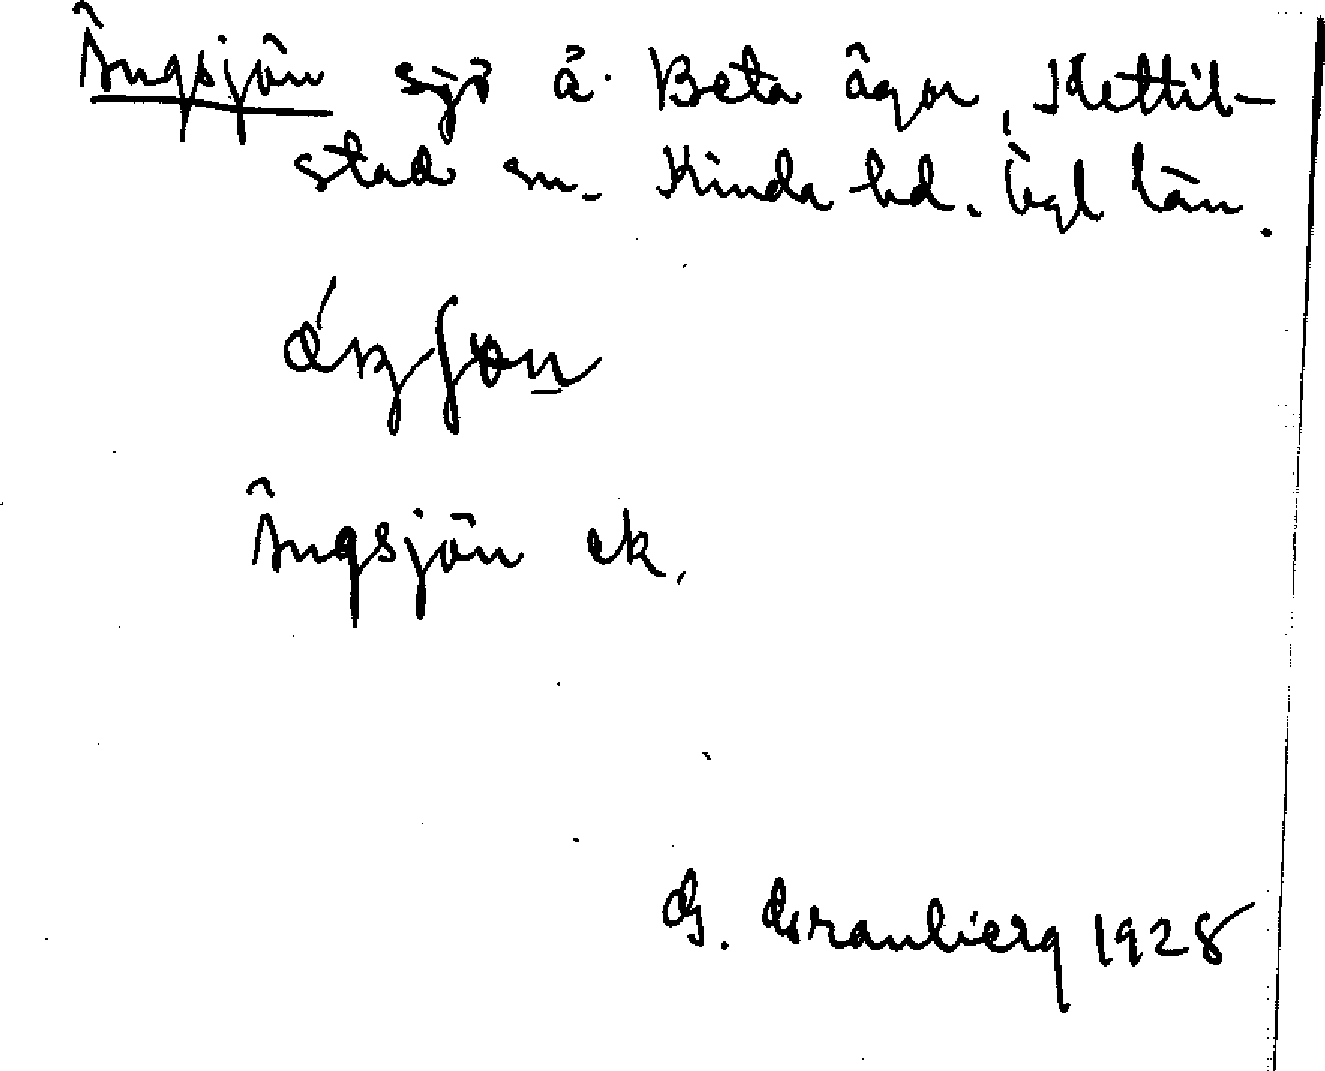 Ängsjön sjö å Beta ägor, Kettil-
stad sn. Kinda hd. Ögl län.
Ängsjön ek.
G. Granbierg 1928